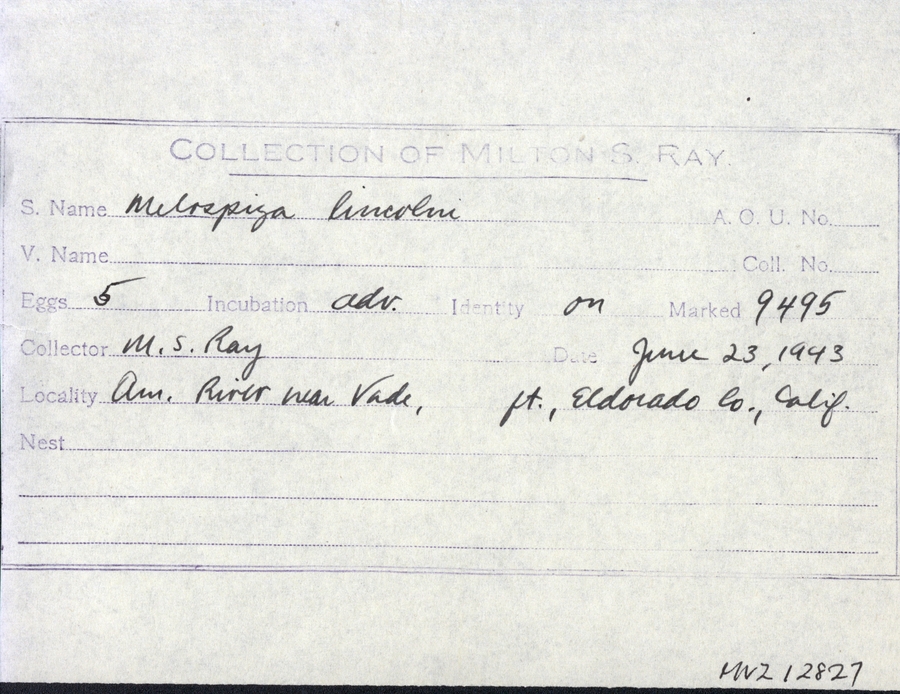 COLLECTION OF MILTON S. RAY.
S. Name Melospiza lincolni A. O. U. No.
V. Name Coll. No.
Eggs 5 Incubation adv. Identity on Marked 9495
Collector M. S. Ray Date June 23, 1943
Locality Am. River near Vade, ft., Eldorado Co., Calif.
Nest
MVZ 12827